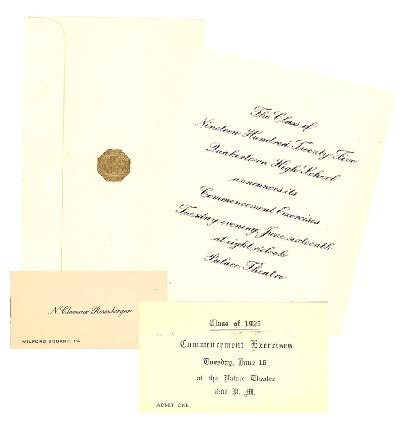 The Class of
Nineteen Hundred Twenty Five
Quakertown High School
announces its
Commencement Exercises
Tuesday evening, June sixteenth
at eight o'clock
Palace Theatre
N. Clarence Rosenberger
MILFORD SQUARE, PA.
Class of 1925
Commencement Exercises
Tuesday, June 16
at the Palace Theatre
8:00 P. M.
ADMIT ONE